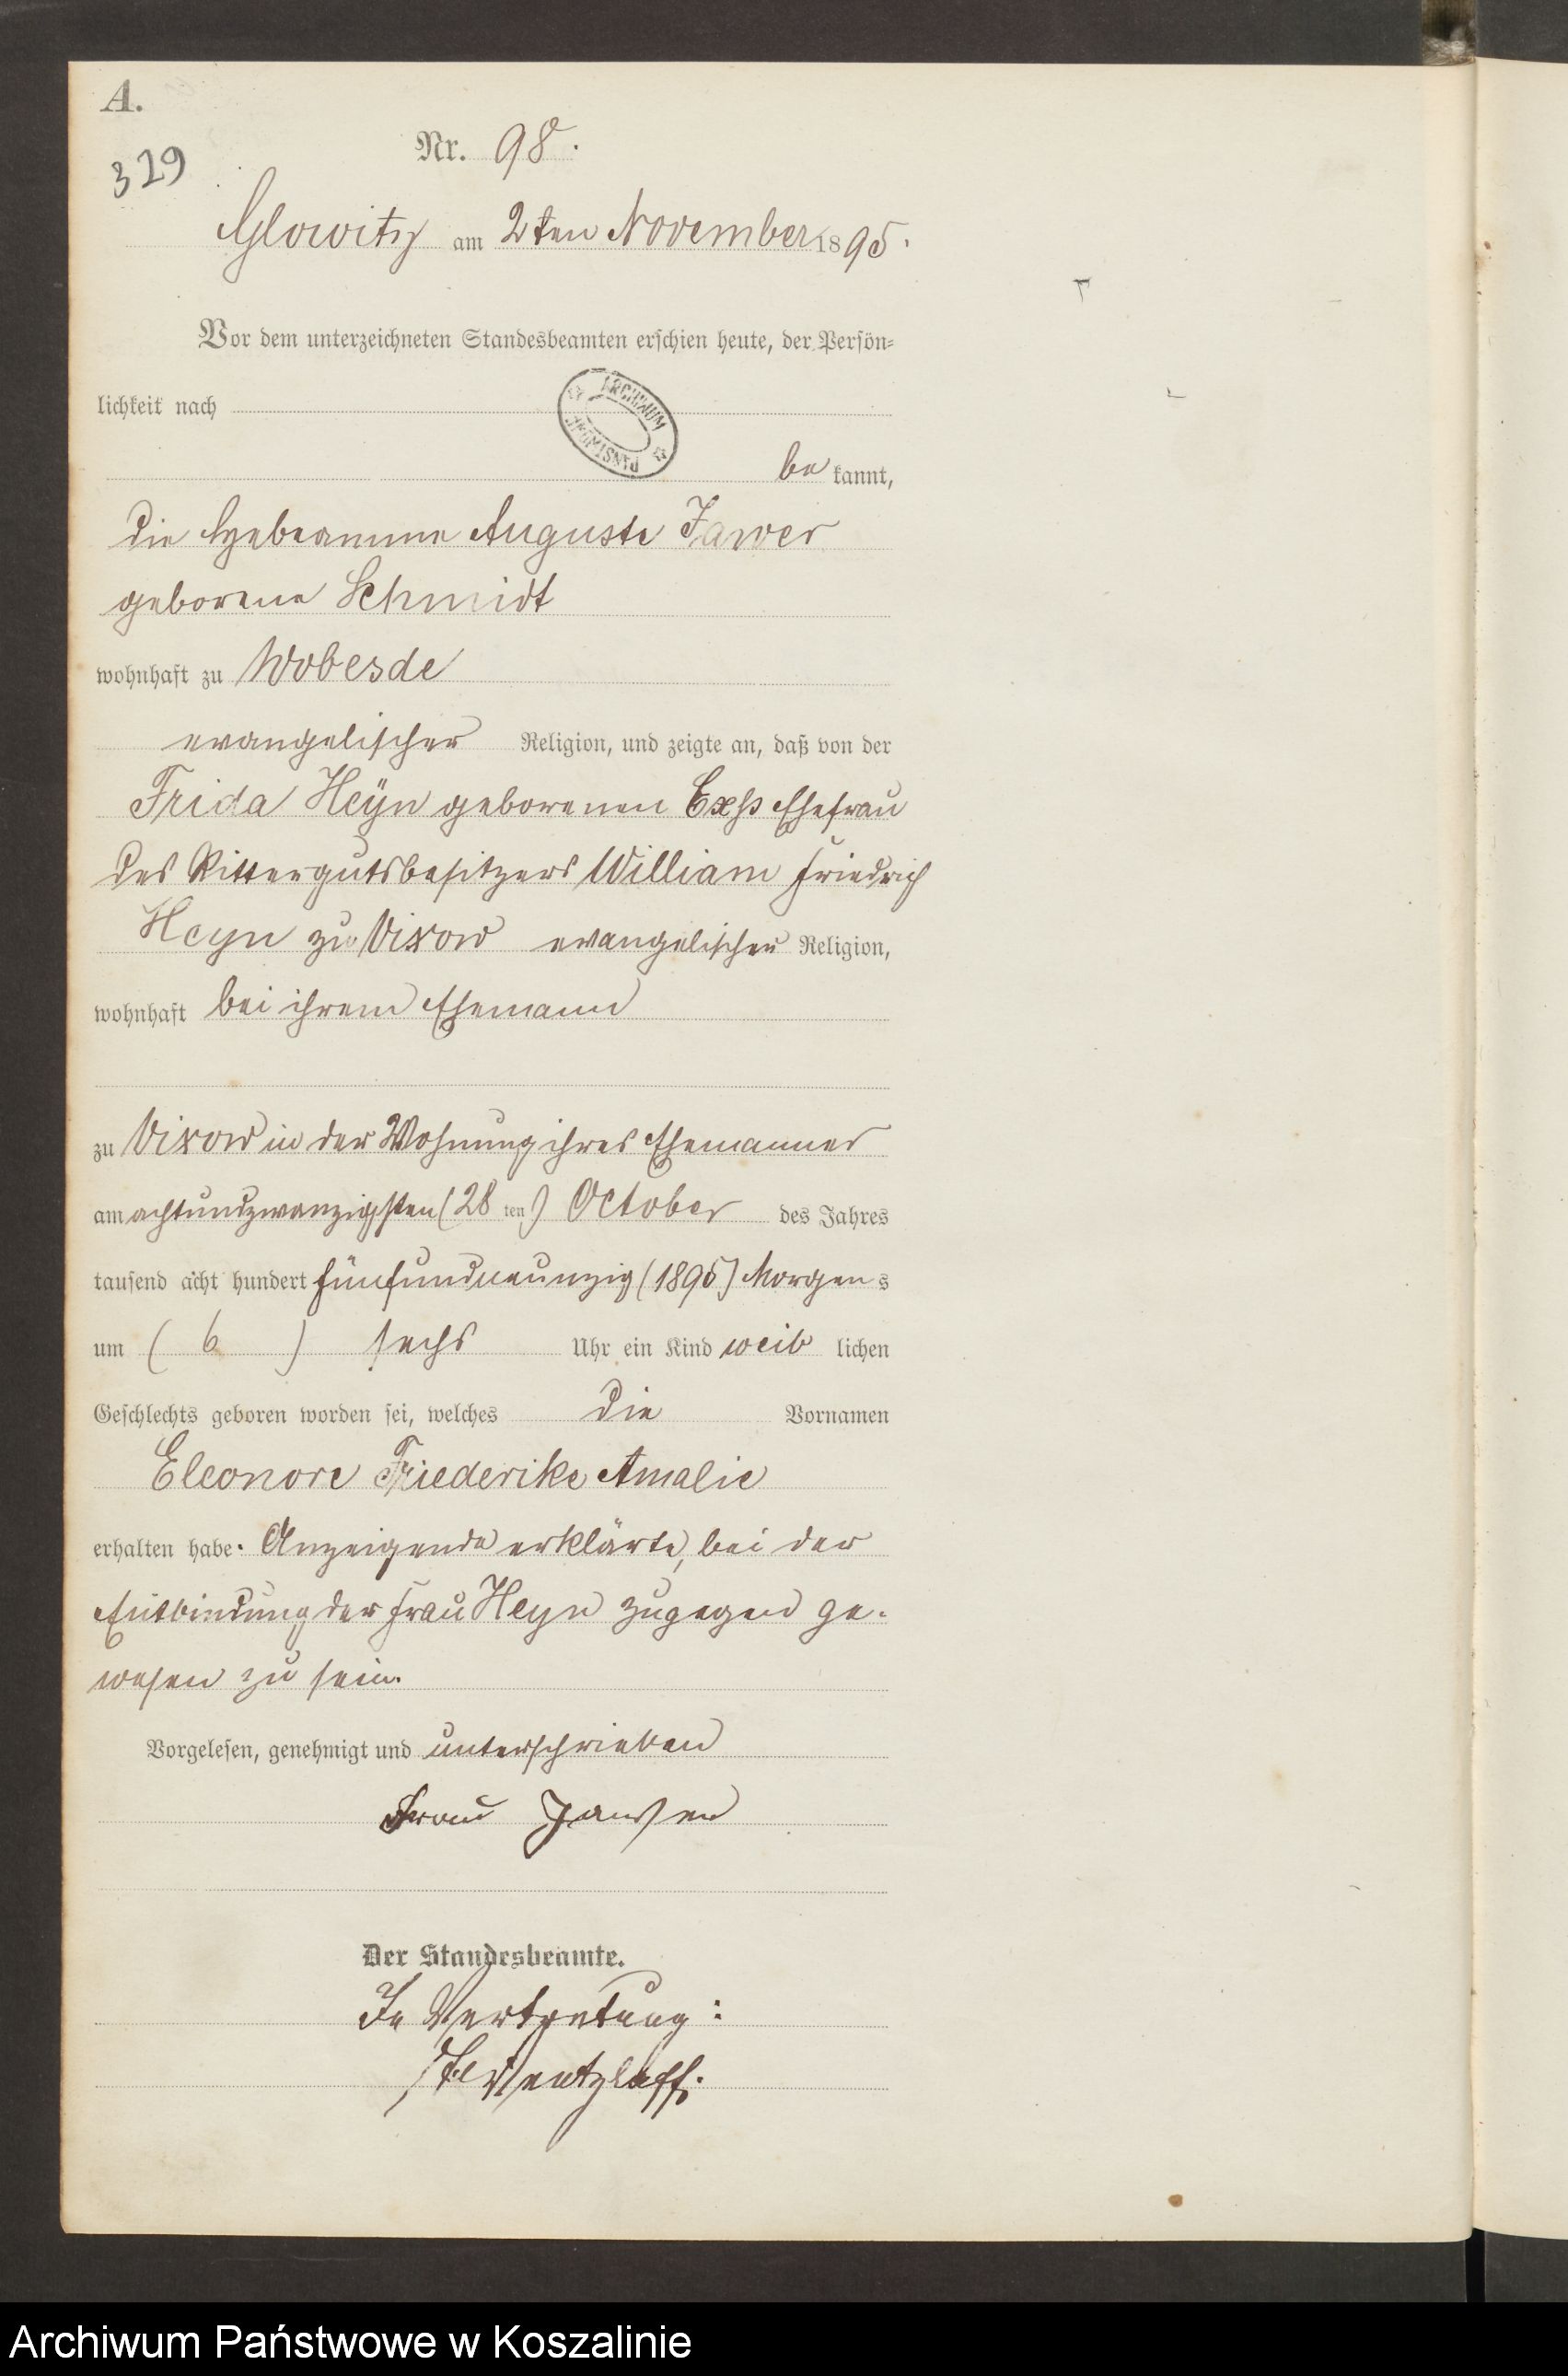 A.
329
Nr. 98.
Glowitz am 2ten November 1895.
Vor dem unterzeichneten Standesbeamten erschien heute, der Persön=
lichkeit nach
ARCHIWUM PAŃSTWOWE
be kannt,
die Hebeamme Auguste Jawer
geborene Schmidt
wohnhaft zu Wobesde
evangelischer Religion, und zeigte an, daß von der
Frida Heyn geborenen Ehefrau
des Rittergutsbesitzers William Friedrich
Heyn zu Vixow evangelischer Religion,
wohnhaft bei ihrem Ehemann
zu Vixow in der Wohnung ihres Ehemannes
am achtundzwanzigsten (28 ten) October des Jahres
tausend acht hundert fünfundneunzig (1895) Morgens
um (6) sechs Uhr ein Kind weib lichen
Geschlechts geboren worden sei, welches die Vornamen
Eleonore Friederike Amalie
erhalten habe. Anzeigende erklärte, bei der
Entbindung der Frau Heyn zugegen ge-
wesen zu sein.
Vorgelesen, genehmigt und unterschrieben
Frau
Der Standesbeamte.
In Vertretung:
Archiwum Państwowe w Koszalinie